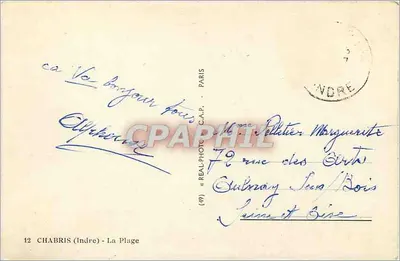 ca Va bonjour tous
Alphonse
12 CHABRIS (Indre) - La Plage
(49) « REAL-PHOTO » C.A.P. - PARIS
INDRE
CPAPHIL
Mme Pelletier Marguerite
72 rue des Arts
Aulnay Sous/Bois
Seine et Oise